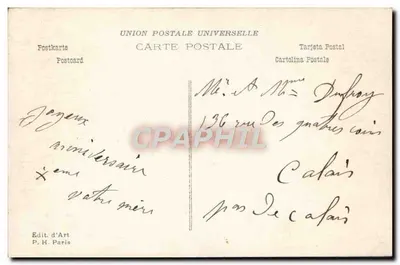 UNION POSTALE UNIVERSELLE
CARTE POSTALE
Postkarte
Postcard
Tarjeta Postal
Cartolina Postale
Joyeux
anniversaire
votre mère
Mr. et Mme Dufroy
136 rue des quatres coins
Calais
pas de Calais
CPAPHIL
Edit. d'Art
P. H. Paris